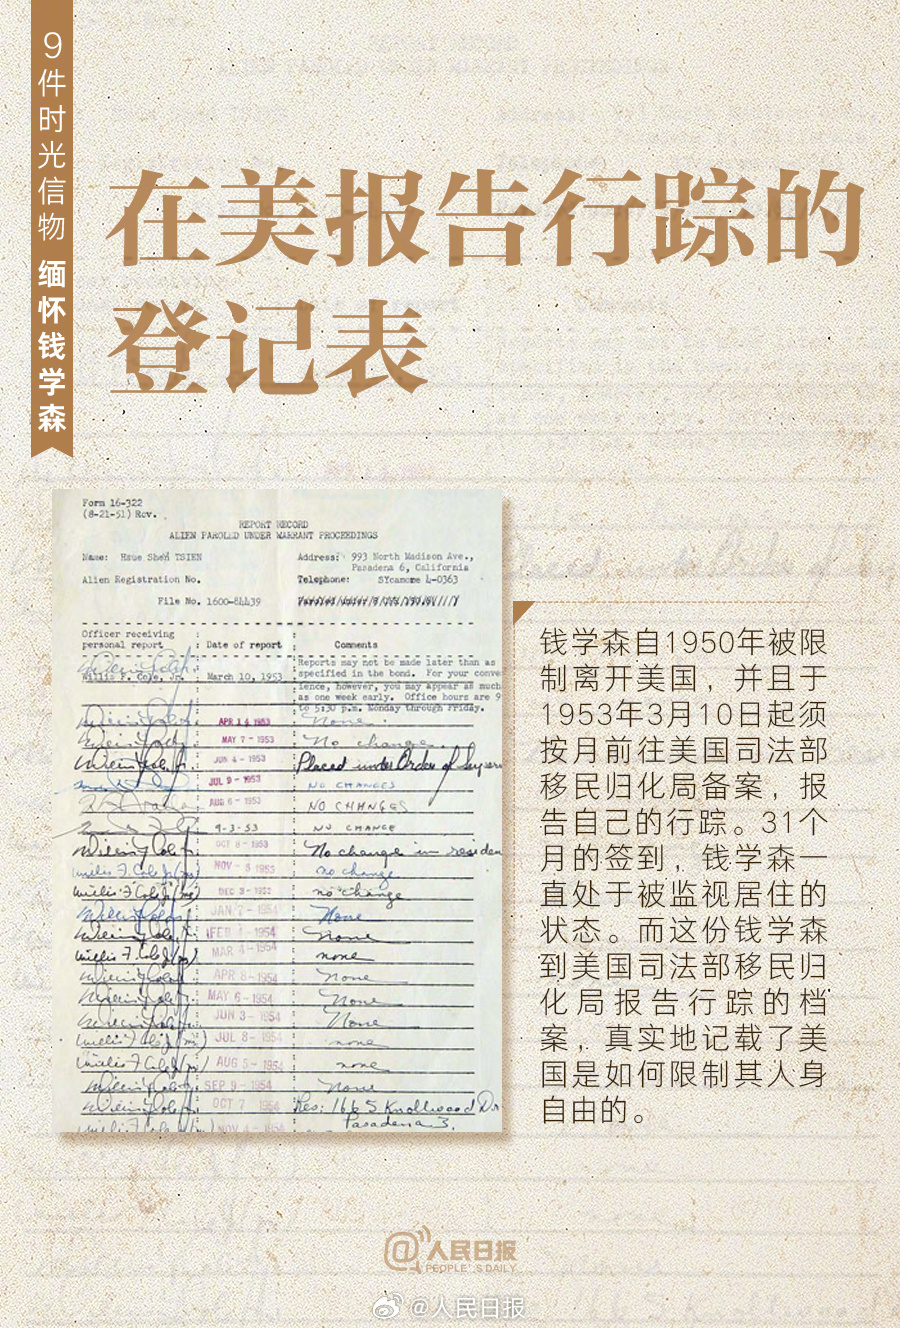 9件时光信物 缅怀钱学森
在美报告行踪的
登记表
Form 16-322
(8-21-51) Rev.
REPORT RECORD
ALIEN PAROLED UNDER WARRANT PROCEEDINGS
Name: Hsue Shen TSIEN
Address: 993 North Madison Ave.,
Pasadena 6, California
Alien Registration No.
Telephone: SYcamore 4-0363
File No. 1600-84439
Officer receiving
personal report
Date of report
Comments
Willis F. Cole, Jr. March 10, 1953
Reports may not be made later than as
specified in the bond. For your conve
ience, however, you may appear as much
as one week early. Office hours are 9
to 5:30 p.m. Monday through Friday.
APR 14 1953 None
MAY 7 - 1953 No change.
JUN 4 - 1953 Placed under Order of Superv
JUL 9 - 1953 NO CHANGES
AUG 6 - 1953 NO CHANGES
9-3-53 NO CHANGE
OCT 8 - 1953 No change in residen
NOV - 5 1953 no change
DEC 3 - 1953 no change
JAN 7 - 1954 None
FEB 4 1954 None
MAR 4 - 1954 none
APR 8 - 1954 None
MAY 6 - 1954 None
JUN 3 - 1954 None
JUL 8 - 1954 none
AUG 5 - 1954 none
SEP 9 - 1954 None
OCT 7 1954 Res: 166 S. Knollwood Dr
Pasadena 3.
NOV 4 - 1954
钱学森自1950年被限
制离开美国，并且于
1953年3月10日起须
按月前往美国司法部
移民归化局备案，报
告自己的行踪。31个
月的签到，钱学森一
直处于被监视居住的
状态。而这份钱学森
到美国司法部移民归
化局报告行踪的档
案，真实地记载了美
国是如何限制其人身
自由的。
@人民日报
PEOPLE'S DAILY
@人民日报